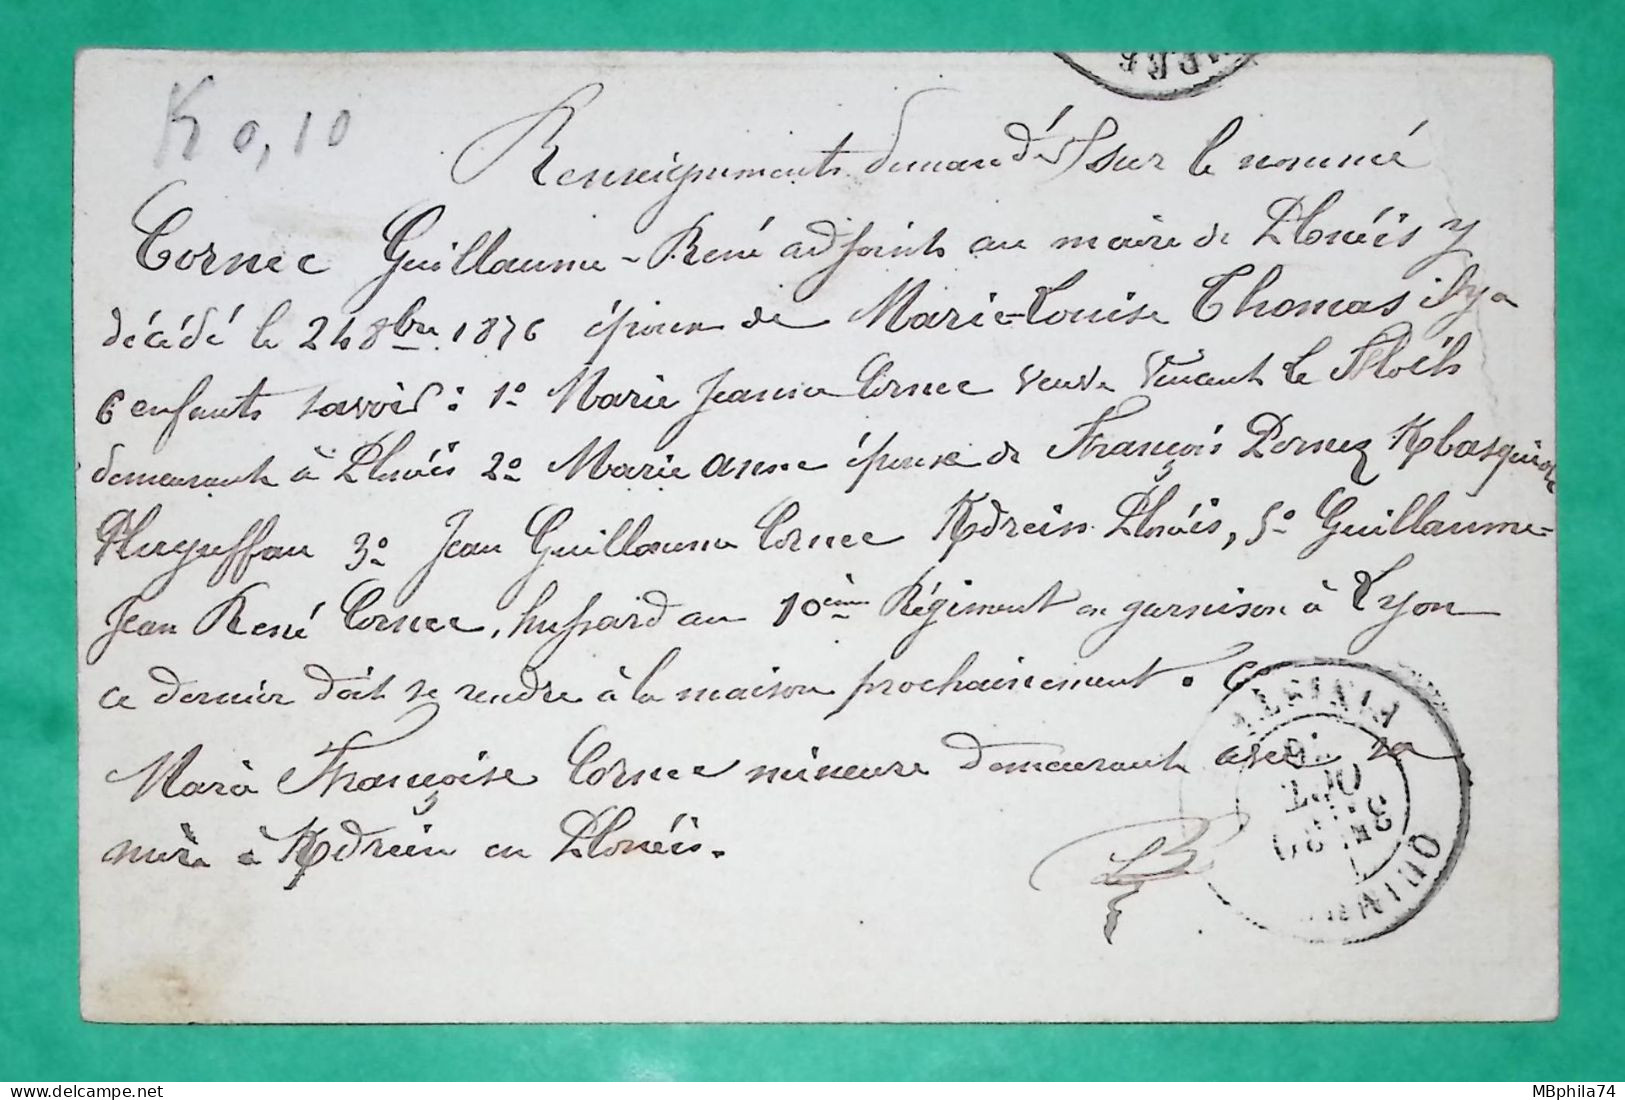 K 0,10
Renseignements demandés sur le nommé
Cornec Guillaume-René adjoint au maire de Plonéis y
décédé le 24 8bre 1876 époux de Marie-Louise Thomas il y a
6 enfants savoir : 1° Marie Jeanne Cornec veuve Vincent Le Floch
demeurant à Plonéis 2° Marie anne épouse de François Pernez
Pluguffan 3° Jean Guillaume Cornec Kdrein Plonéis, 5° Guillaume-
Jean René Cornec, hussard au 10ème Régiment en garnison à Lyon
ce dernier doit se rendre à la maison prochainement. 6°
Marie Françoise Cornec mineure demeurant avec sa
mère à Kdrein en Plonéis.
QUIMPER
FINISTERE
MBphila74